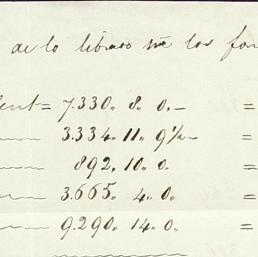 de lo libras de los for
ent = 7.330,, 8,, 0. — =
3.334.. 11.. 9½ — =
892,, 10.. 0. =
3.665.. 4.. 0. =
9.290.. 14.. 0. =